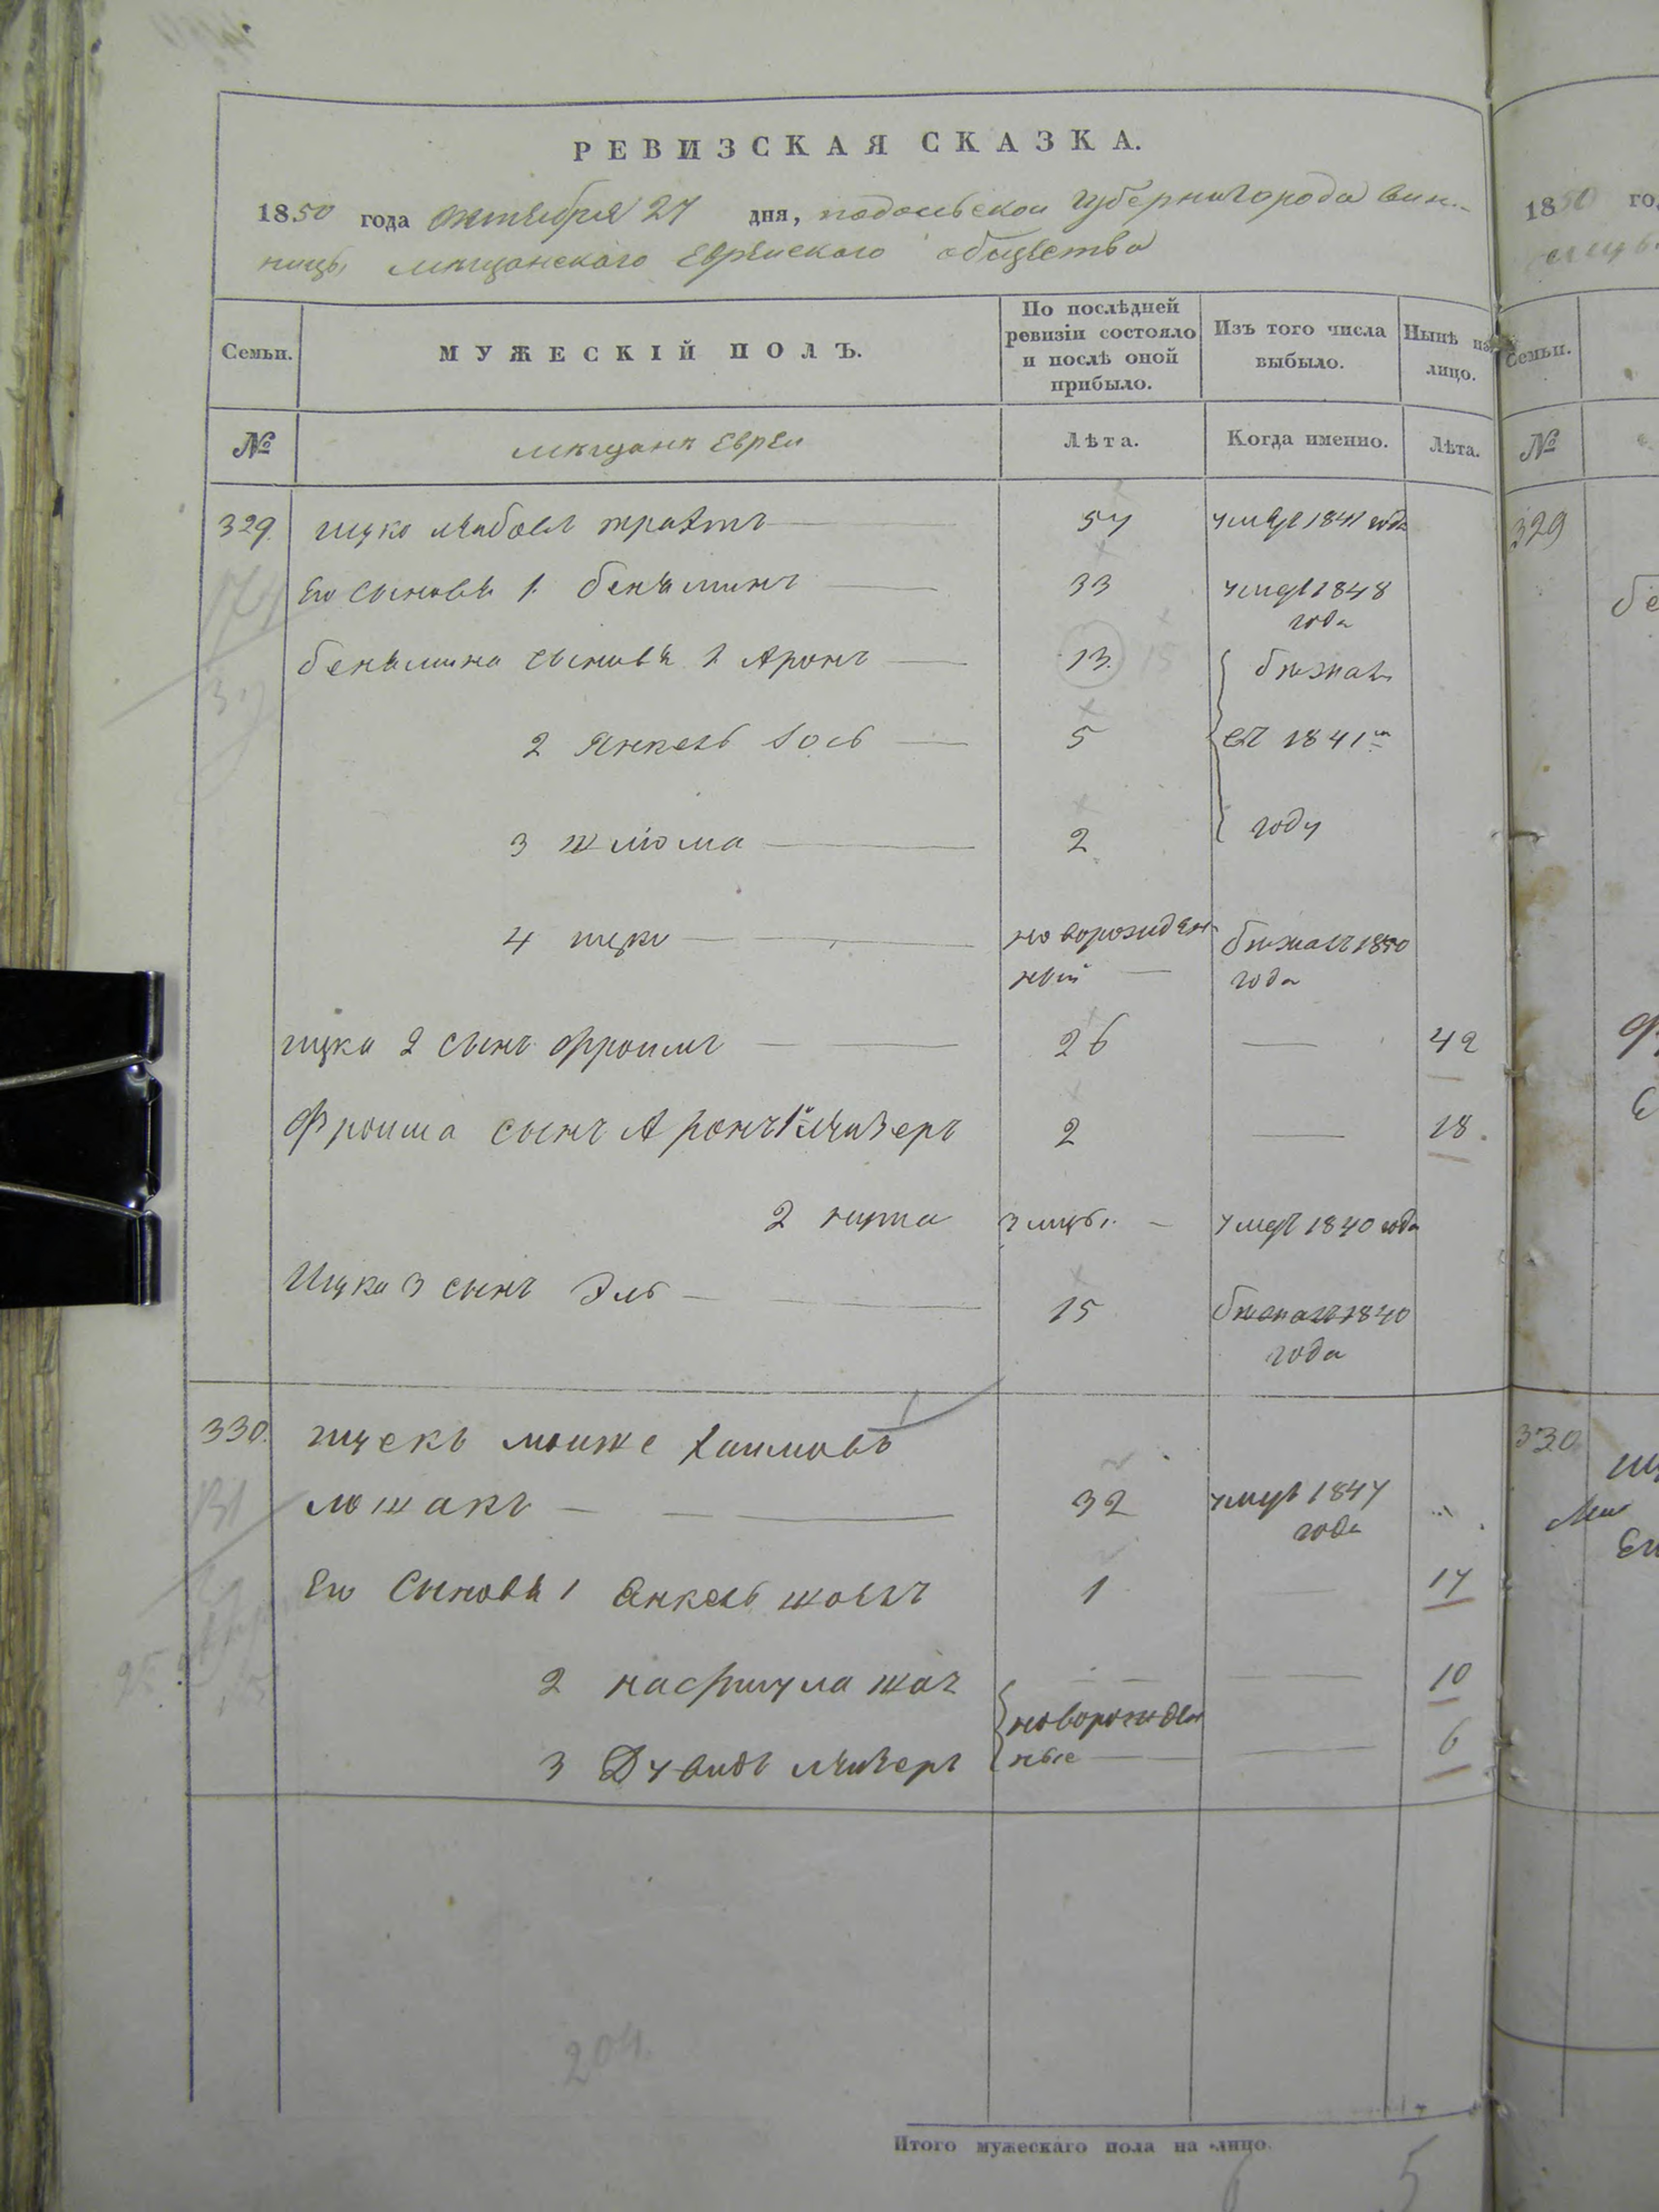 РЕВИЗСКАЯ СКАЗКА.
1850 года октября 27 дня, подольской губернии города вин-
ницы мещанскаго Еврейскаго общества
Семьи. МУЖЕСКІЙ ПОЛЪ. По послѣдней ревизіи состояло и послѣ оной прибыло. Изъ того числа выбыло. Нынѣ на лицо.
№ мещане Евреи Лѣта. Когда именно. Лѣта.
329 ицко лейбовъ 57 умеръ 1841 года
Его сыновья 1. бенямин 33 умеръ 1848
года
бенямина сыновья 1 Аронъ 13. бежали
2 Янкель Іось 5 въ 1841м
3 шліома 2 году
4 ицко новорожден- бежалъ 1850
ный года
ицка 2 сынъ Фроимъ 26 42
Фроима сынъ Аронъ 1й лейзеръ 2 18.
2 нута 3 умеръ 1840 года
Ицка 3 сынъ Эль 15 бежалъ 1840
года
330. ицекъ мошке хаимовъ
лошакъ 32 умеръ 1847
года
Его Сыновья 1 Янкель 1 17
2 10
новорожден
3 Дувидъ лейзеръ ные 6
204.
Итого мужескаго пола на лицо.
5
1850 го
Семьи.
№
329
330